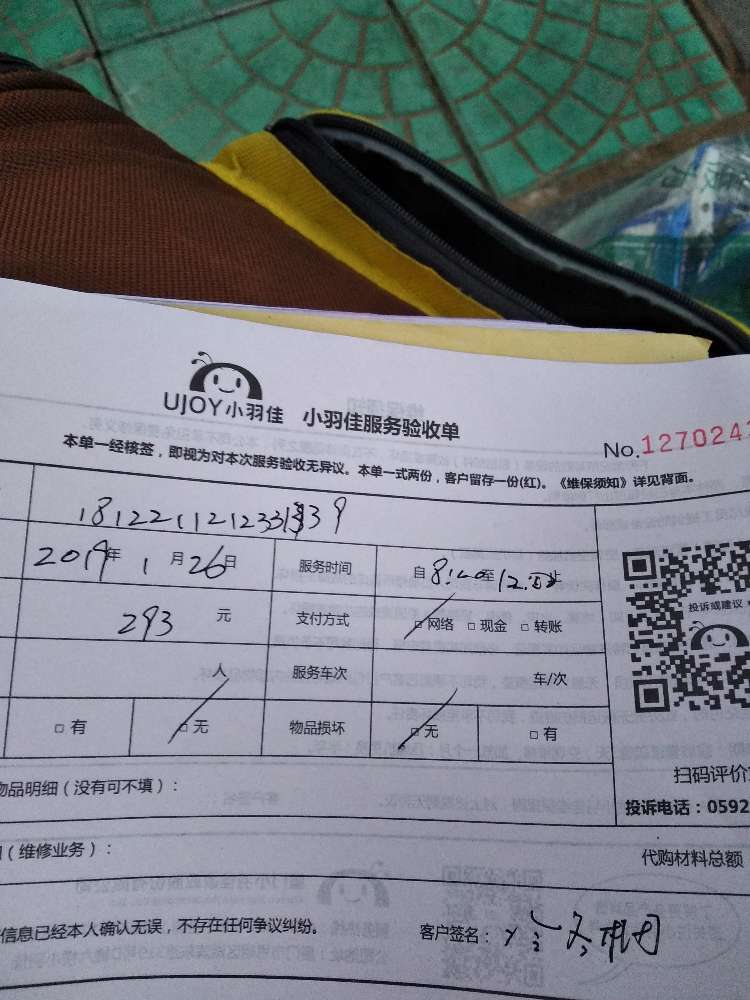 UJOY小羽佳 小羽佳服务验收单
No.127024
本单一经核签，即视为对本次服务验收无异议。本单一式两份，客户留存一份(红)。《维保须知》详见背面。
2019年 1月26日 服务时间 自8:40至12:00止
投诉或建议
293 元 支付方式 □网络 □现金 □转账
人 服务车次 车/次
□有 □无 物品损坏 □无 □有
扫码评价
物品明细（没有可不填）：
投诉电话：0592
（维修业务）：
代购材料总额
信息已经本人确认无误，不存在任何争议纠纷。 客户签名：